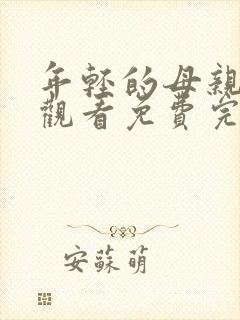 年轻的母親
觀看免費完
安蘇萌